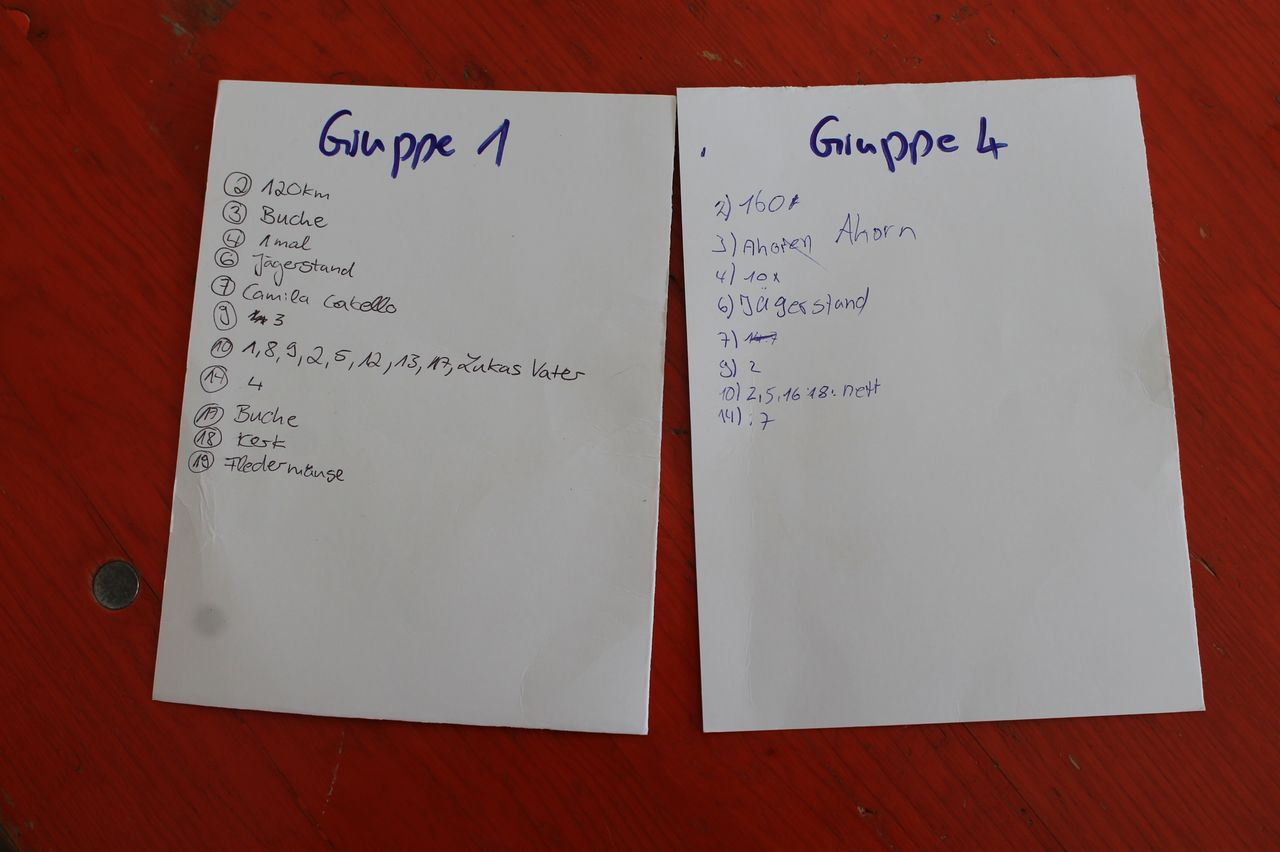 Gruppe 1
2 120km
3 Buche
4 1mal
6 Jägerstand
7 Camila Cabello
9 3
10 1,8,9,2,5,12,13,17,Lukas Vater
14 4
17 Buche
18 Kork
19 Fledermäuse
Gruppe 4
2) 160
3) Ahoren Ahorn
4) 10x
6) Jägerstand
7)
9) 2
10) 2,5,16 18: nett
14) : 7